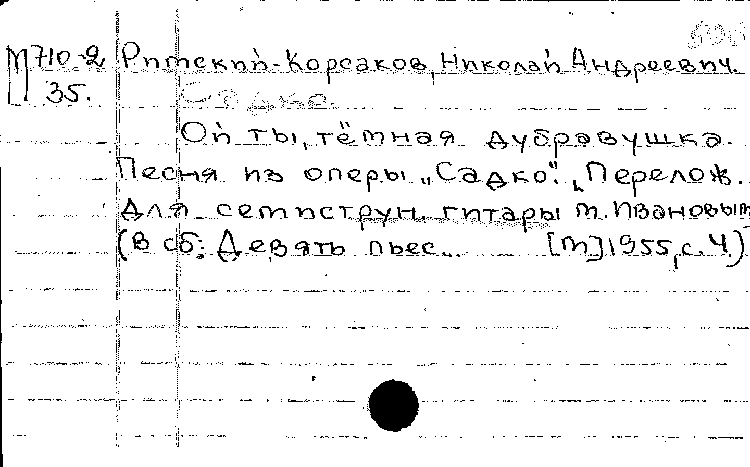 М710-2 Римский-Корсаков, Николай Андреевич.
35. Садко.
Ой ты, тёмная дубравушка.
Песня из оперы „Садко". Перелож.
для семиструн. гитары М. Ивановым
(В сб: Девять пьес... [М] 1955, с. 4.)